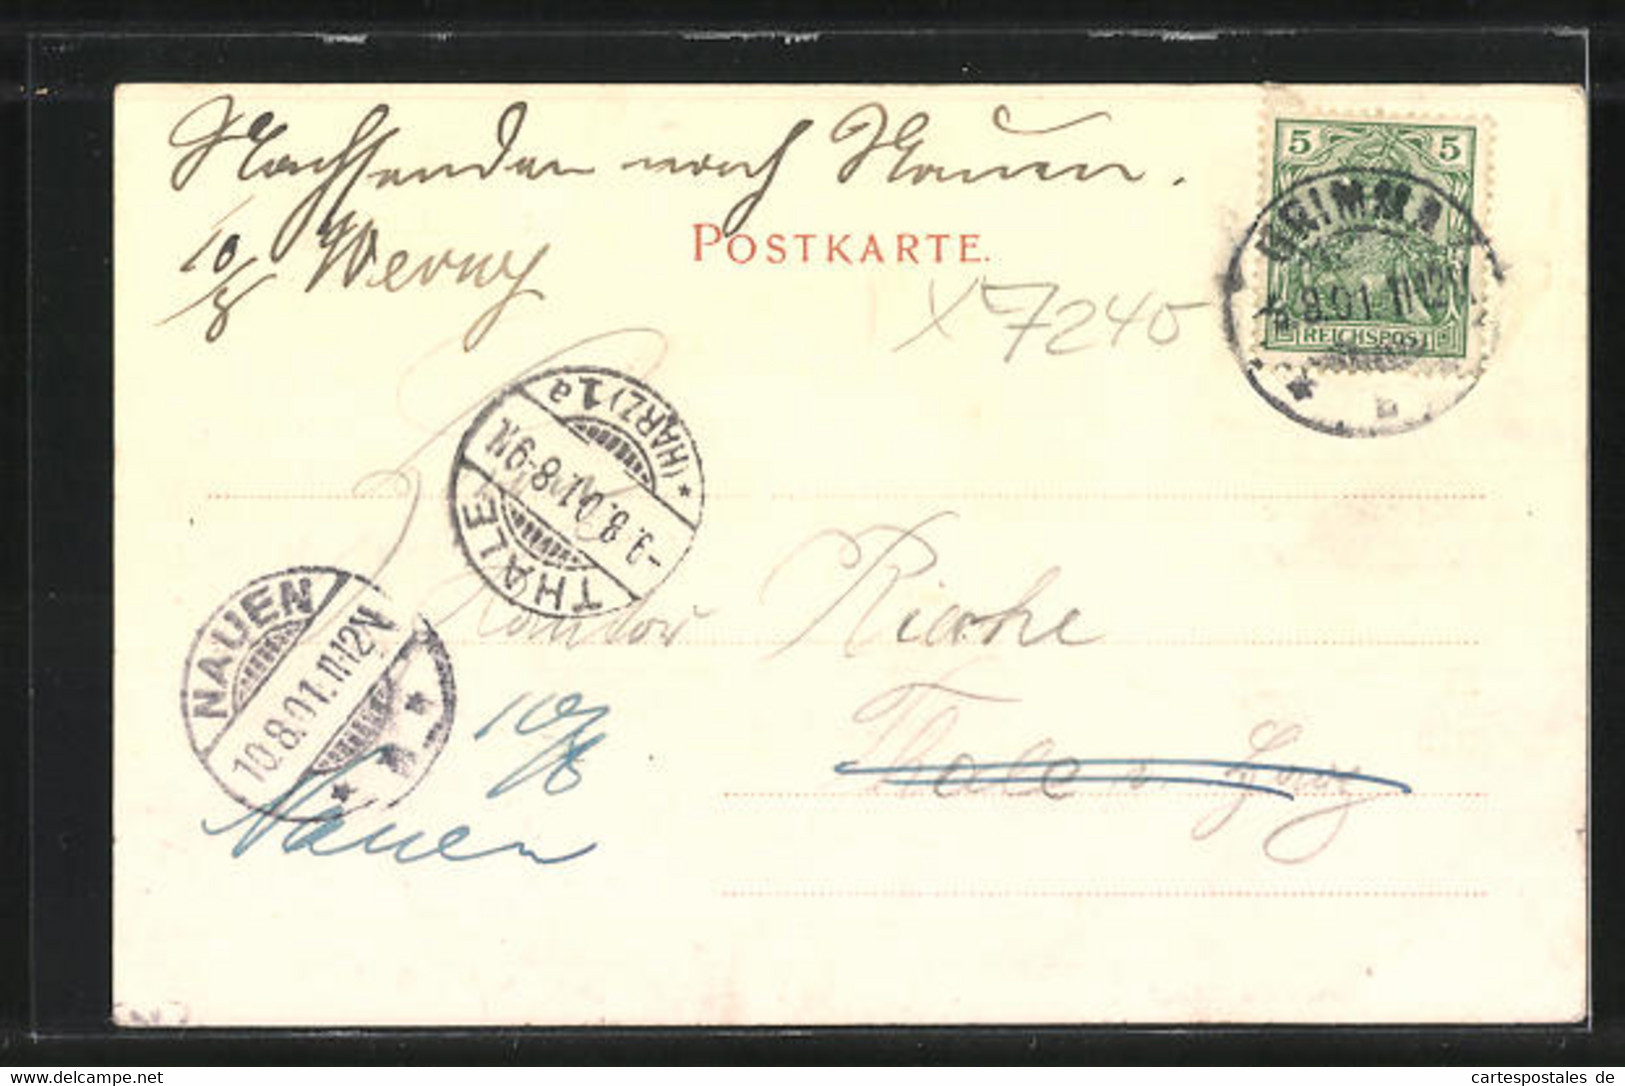 Nachsenden nach Nauen.
10/8 Werny
POSTKARTE.
X 7240
5 5
REICHSPOST
GRIMMA
8.01. 11-12 V
b
THALE
(HARZ) 1a
-9.8.01. 8-9N.
NAUEN
10.8.01. 11-12V
Thale a. Harz
10/8
Nauen
www.cartespostales.de
cartespostales de